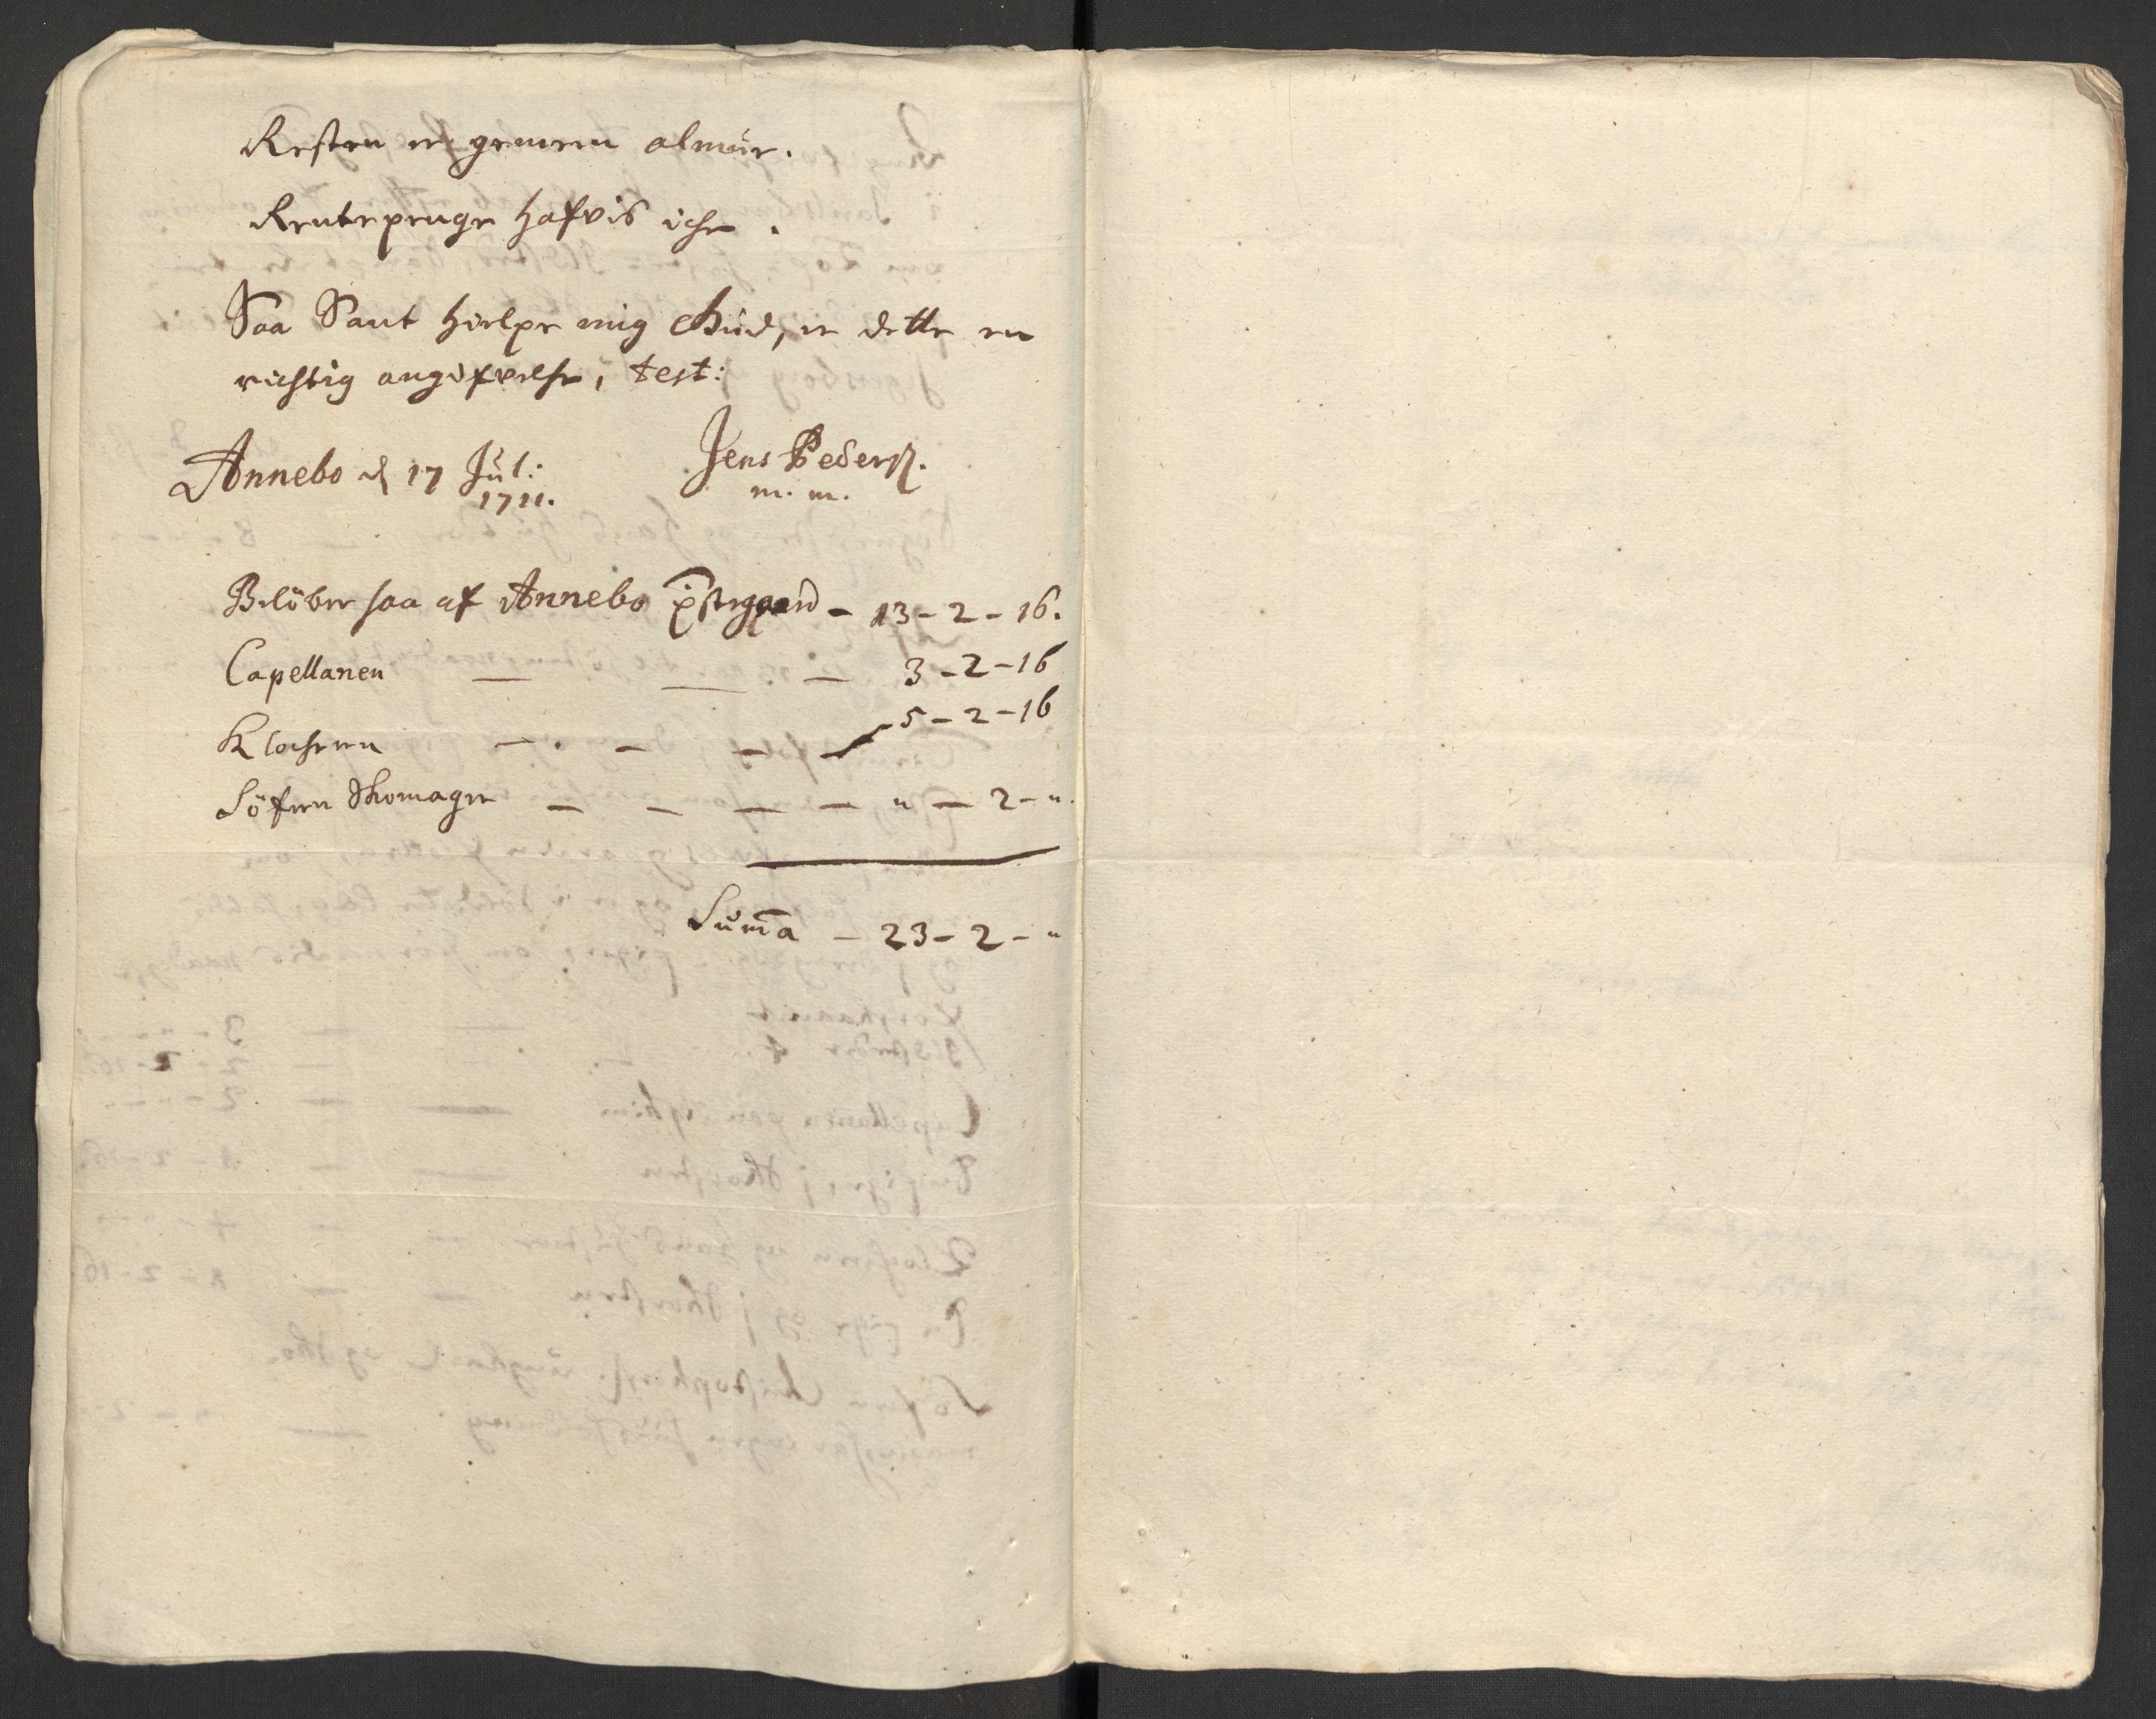 Resten er gemeen almue.
Rentepenge hafvis iche.
Saa Sant hielpe mig Gud, er dette en
richtig angifvelse, test:
Annebo d 17 Jul: 1711.
Jens Pederß.
m. m.
Beløber saa af Annebo Østgaard - 13 - 2 - 16.
Capellanen — — — 3 - 2 - 16
Klocheren — — — — 5 - 2 - 16
Söfren Skomager — — — — " — 2 - ".
Suma̅ — 23 - 2 - "